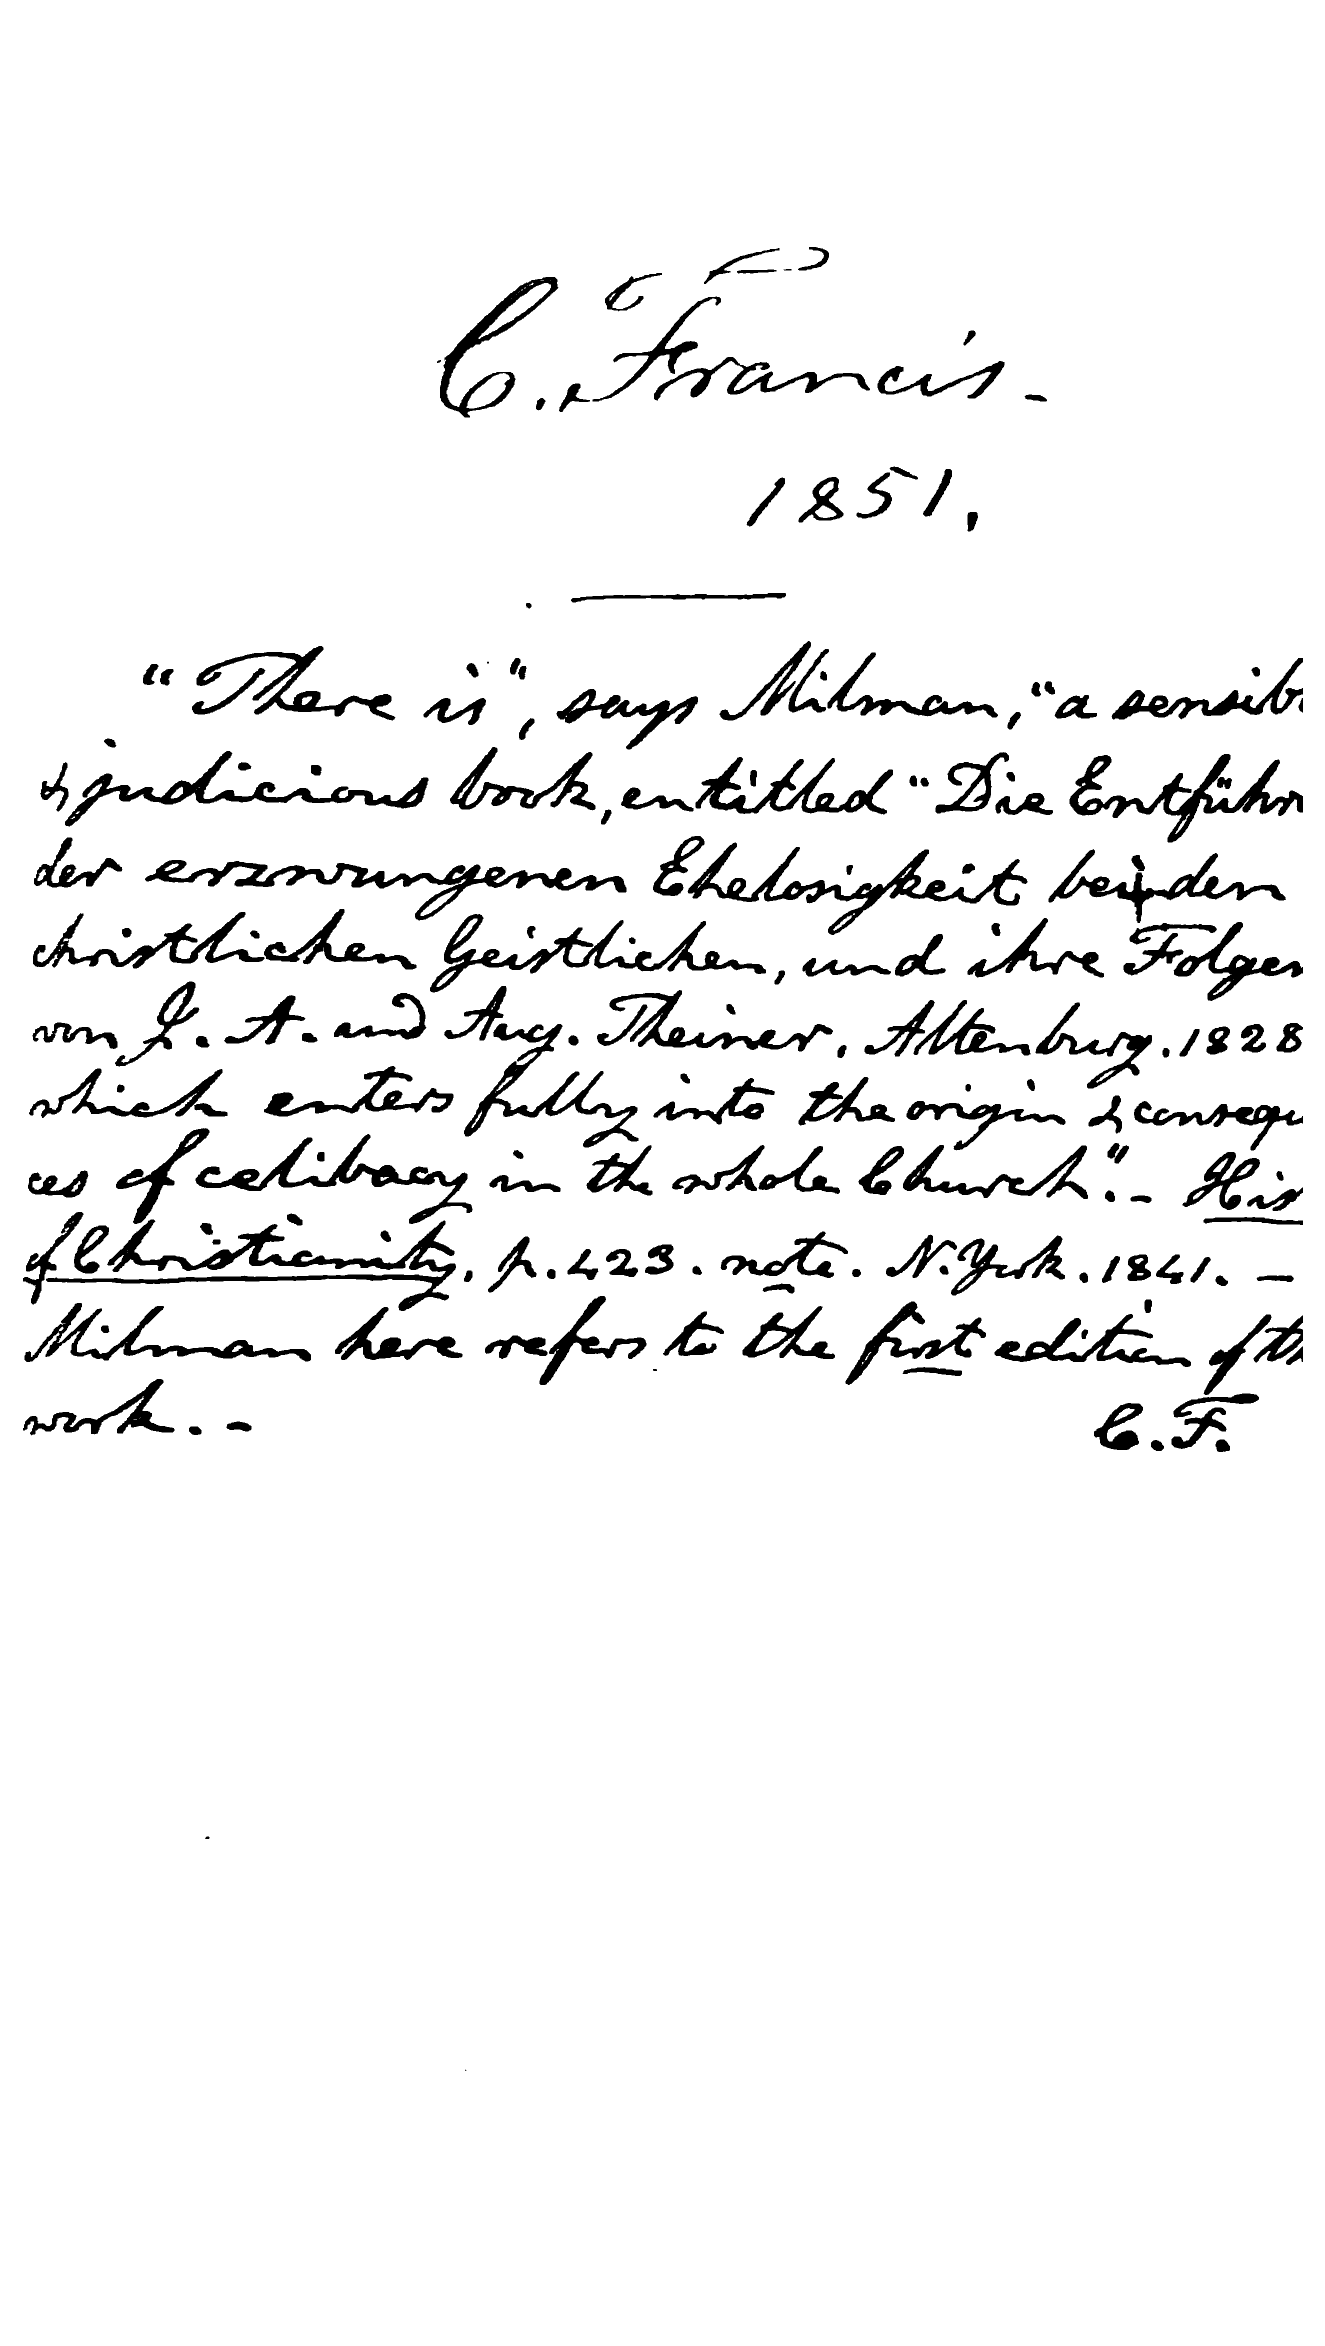 C. Francis.
1851.
"There is", says Milman, "a sensib
& judicious book, entitled "Die Entführ
der erzwungenen Ehelosigkeit bei den
christlichen Geistlichen, und ihre Folgen
von J. A. und Aug. Theiner. Altenburg. 1828
which enters fully into the origin & consequ
ces of celibacy in the whole Church". - His
of Christianity, p. 423. note. N. York. 1841. —
Milman here refers to the first edition of th
work. -
C. F.